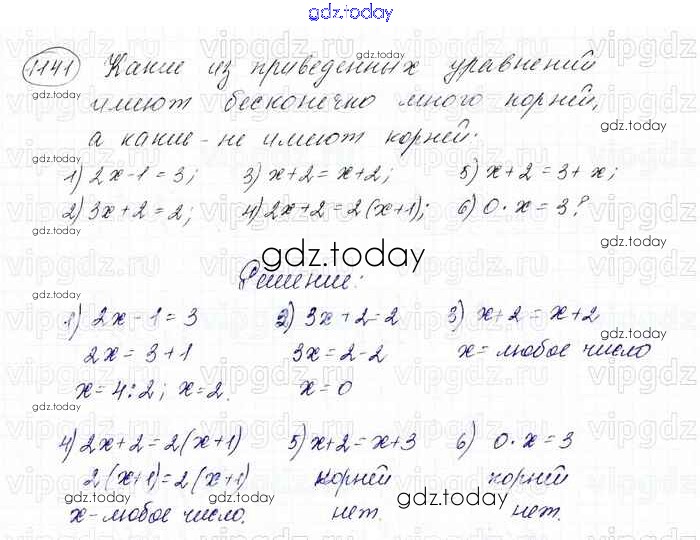 gdz.today
1141 Какие из приведенных уравнений
имеют бесконечно много корней,
а какие - не имеют корней:
1) 2x-1=3; 3) x+2=x+2; 5) x+2=3+x;
2) 3x+2=2; 4) 2x+2=2(x+1); 6) 0·x=3?
gdz.today
Решение:
1) 2x-1=3 2) 3x+2=2 3) x+2=x+2
2x=3+1 3x=2-2 x=любое число
x=4:2; x=2. x=0
4) 2x+2=2(x+1) 5) x+2=x+3 6) 0·x=3
2(x+1)=2(x+1) корней корней
x-любое число. нет. нет.
gdz.today